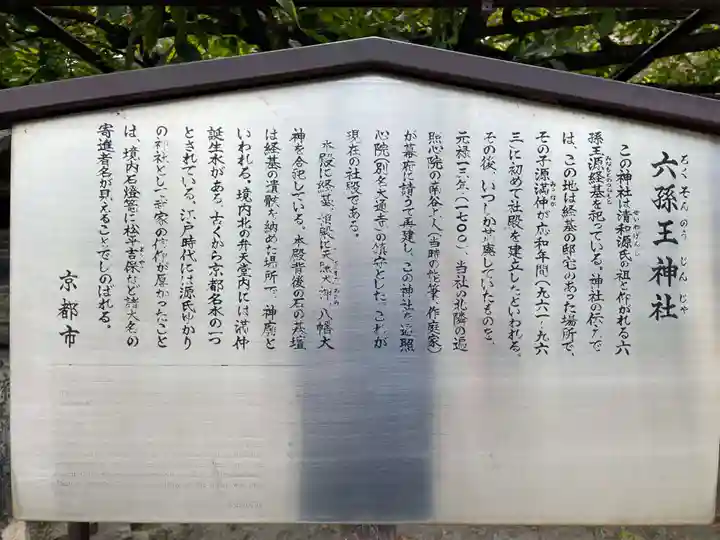 六孫王神社
ろくそんのうじんじゃ
この神社は清和源氏の祖と仰がれる六
孫王源経基を祀っている。神社の伝えで
は、この地は経基の邸宅のあった場所で、
その子源満仲が応和年間(九六一〜九六
三)に初めて社殿を建立したといわれる。
その後、いつしか廃していたものを、
元禄一三年(一七〇〇)、当社の北隣の遍
照心院の南谷上人(当時の能筆、作庭家)
が幕府に請うて再建し、この神社を遍照
心院(別名大通寺)の鎮守とした。これが
現在の社殿である。
本殿に経基、相殿に天照大御神、八幡大
神を合祀している。本殿背後の石の基壇
は経基の遺骸を納めた場所で、神廟と
いわれる。境内北の弁天堂内には満仲
誕生水がある。古くから京都名水の一つ
とされている。江戸時代には源氏ゆかり
の神社として武家の信仰が厚かったこと
は、境内石燈籠に松平吉保など諸大名の
寄進者名が見えることでしのばれる。
京都市